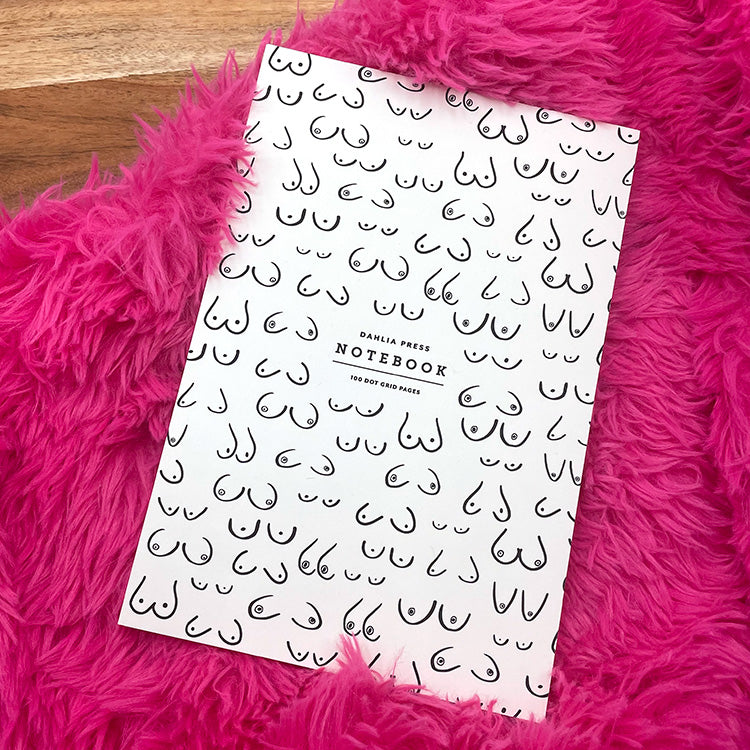 DAHLIA PRESS
NOTEBOOK
100 DOT GRID PAGES